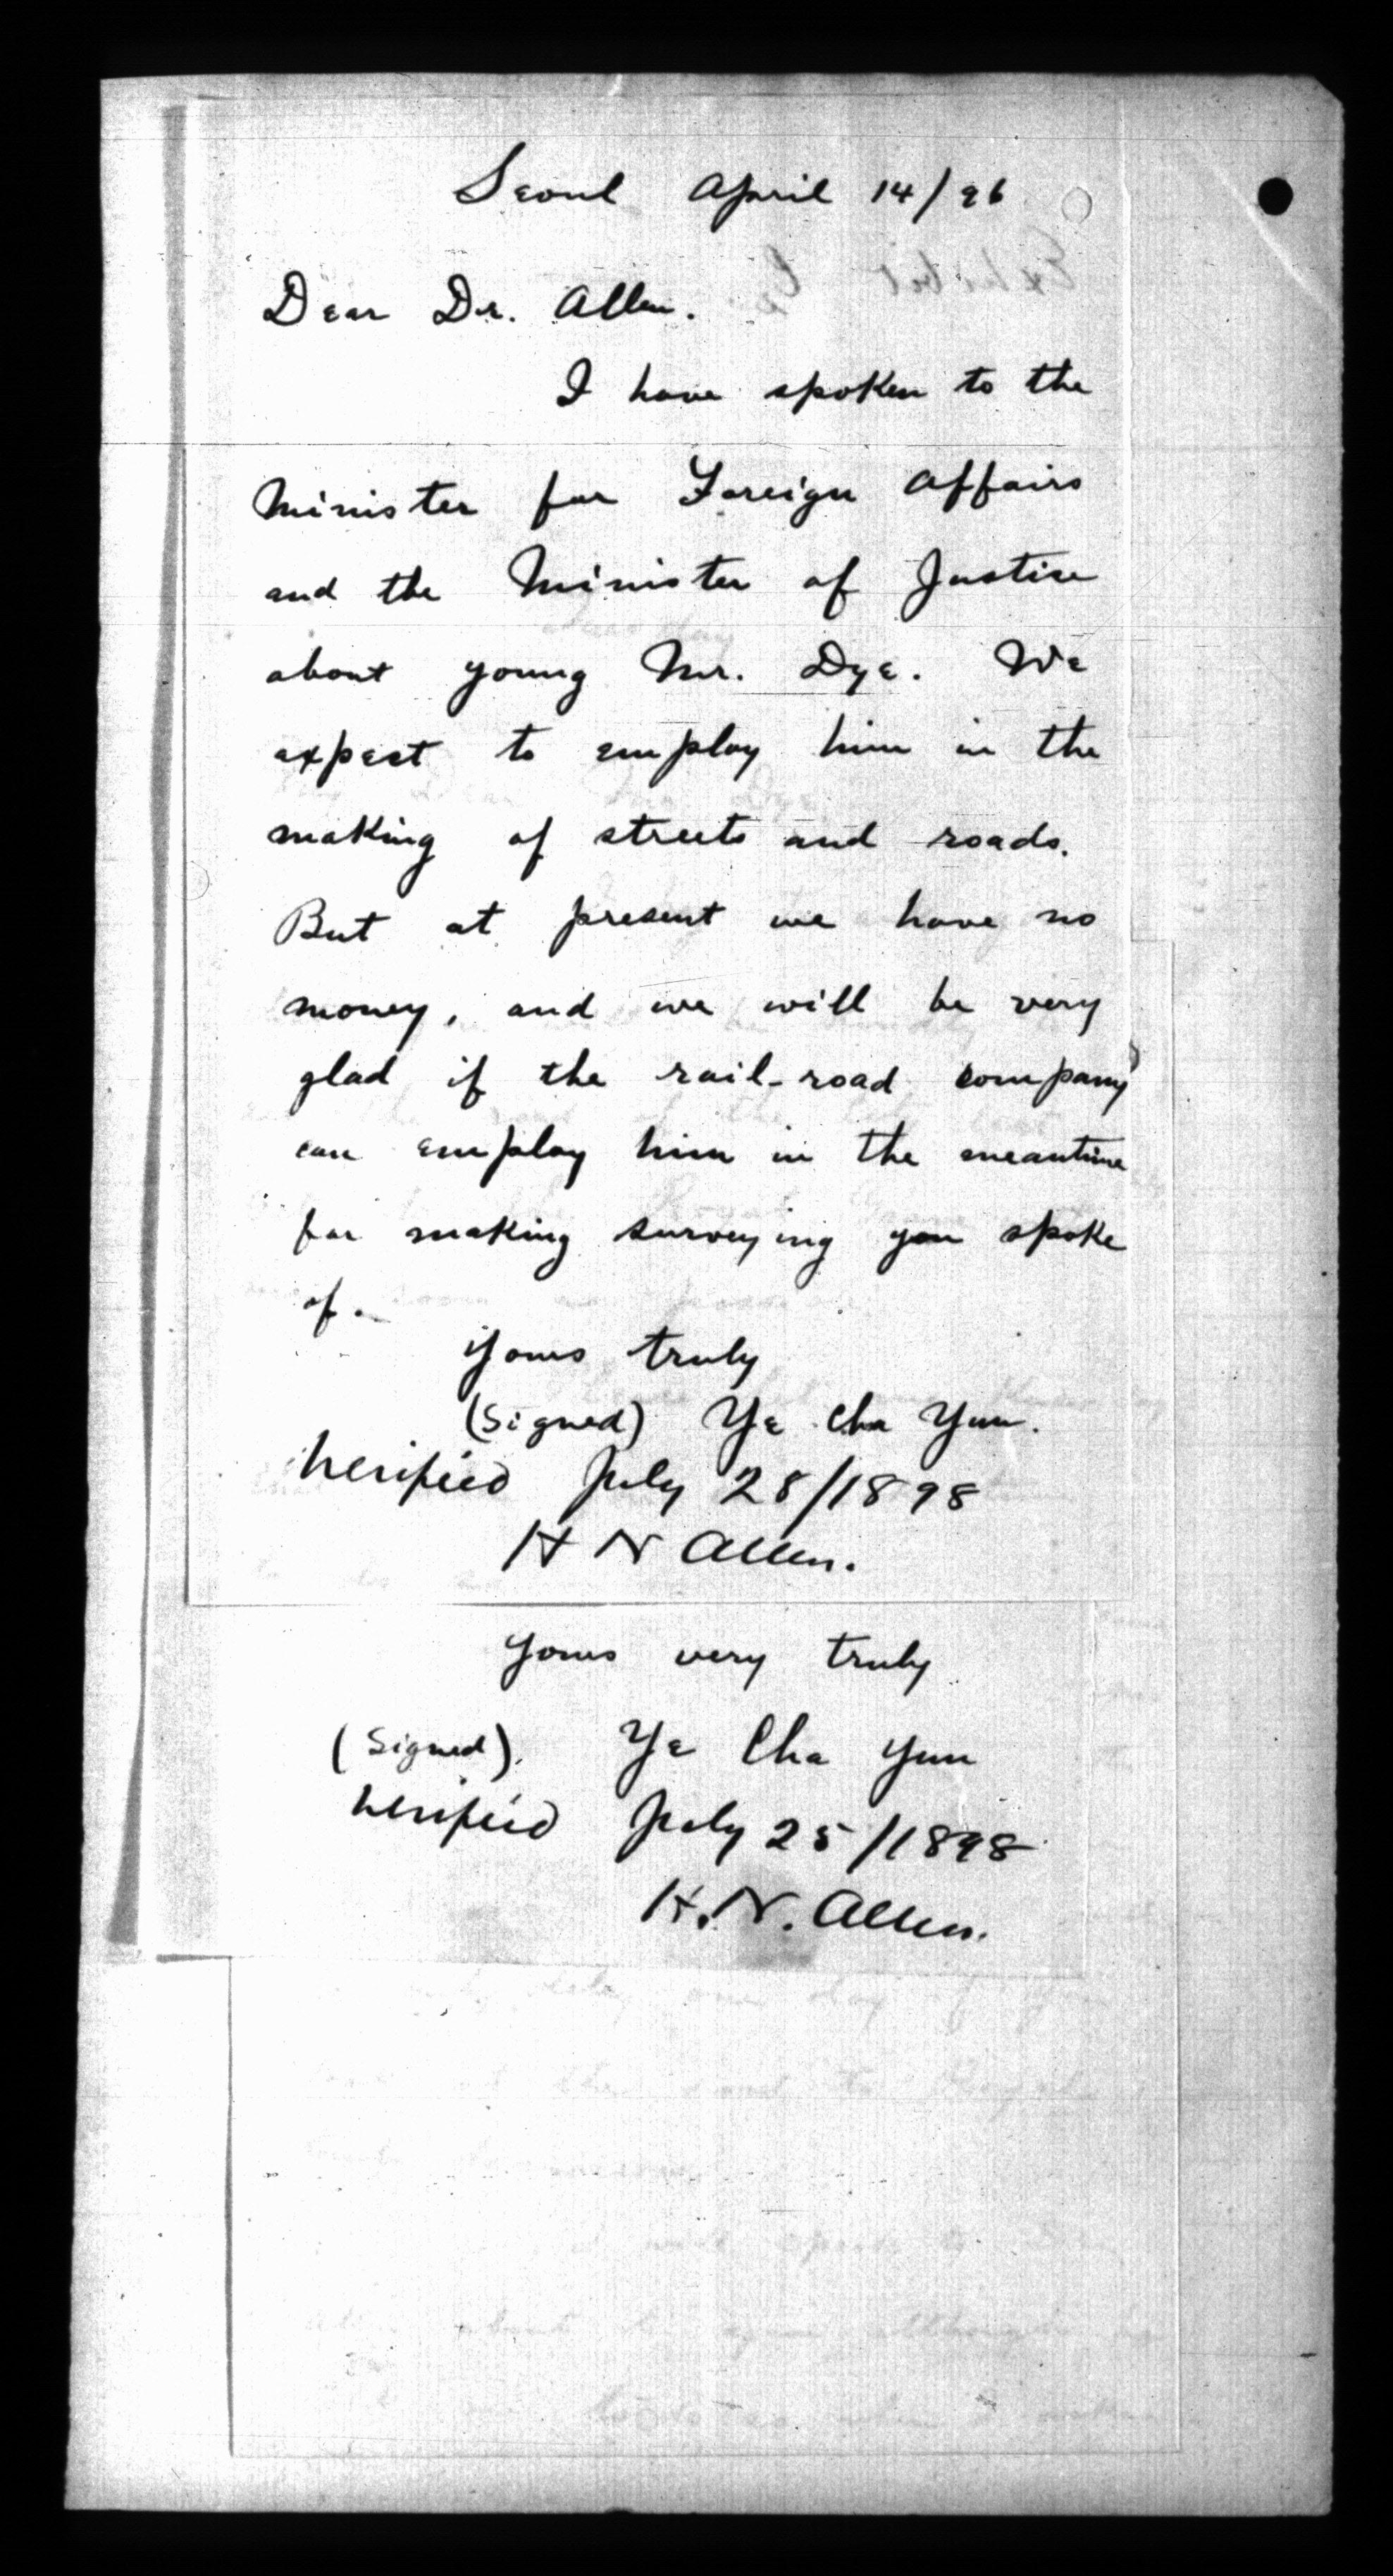 Seoul April 14/96
Dear Dr. Allen.
I have spoken to the
Minister for Foreign Affairs
and the Minister of Justice
about young Mr. Dye. We
expect to employ him in the
making of streets and roads.
But at present we have no
money, and we will be very
glad if the rail-road company
can employ him in the meantime
for making surveying you spoke
of.
Yours truly
(Signed) Ye Cha Yun.
Verified July 28/1898
H N Allen.
Yours very truly
(Signed). Ye Cha Yun
Verified July 25/1898
H. N. Allen.